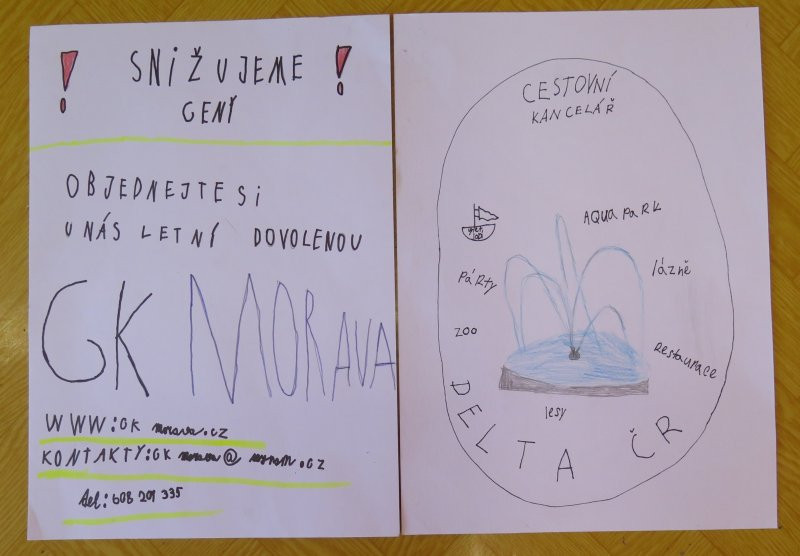 ! SNIŽUJEME !
GENÍ
OBJEDNEJTE SI
U NÁS LETNÍ DOVOLENOU
GK MORAVA
WWW:GK morava.cz
KONTAKTY:GK @ .cz
tel: 608 201 335
CESTOVNÍ
KANCELÁŘ
AQUAPARK
lázně
PÁRTY
ZOO
Restaurace
lesy
DELTA ČR